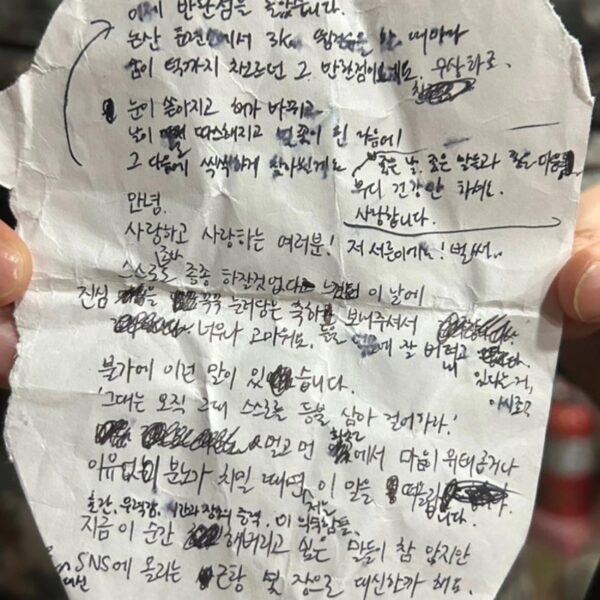 이게 반환점을 돌았습니다.
논산 훈련소에서 3K 뜀걸음을 한 때마다
숨이 턱까지 차오르던 그 반환점이네요. 무상화로
눈이 쏟아지고 해가 바뀌고
날이 따스해지고 벚꽃이 핀 다음에
그 다음에 씩씩하게 찾아뵐게요
좋은 날, 좋은 말들과 좋은 마음
부디 건강만 하세요.
사랑합니다.
안녕.
사랑하고 사랑하는 여러분! 저 서른이에요! 벌써..
스스로 종종 하잘것없다 이 날에
진심을 꾹꾹 눌러담은 축하 보내주셔서
너무나 고마워요. 잘 버티고
있다는 거,
불가에 이런 말이 있습니다.
'그대는 오직 그대 스스로를 등불 삼아 걸어가라.'
멀고 먼 에서 마음이 위태롭거나
이유없이 분노가 치밀 때면 저는 이 말을 떠올립니다.
혼란, 무력감, 시간과 장소의 충격. 이 의뭉함들.
지금 이 순간 해버리고 싶은 말들이 참 많지만
SNS에 올리는 근황 몇 장으로 대신할까 해요.